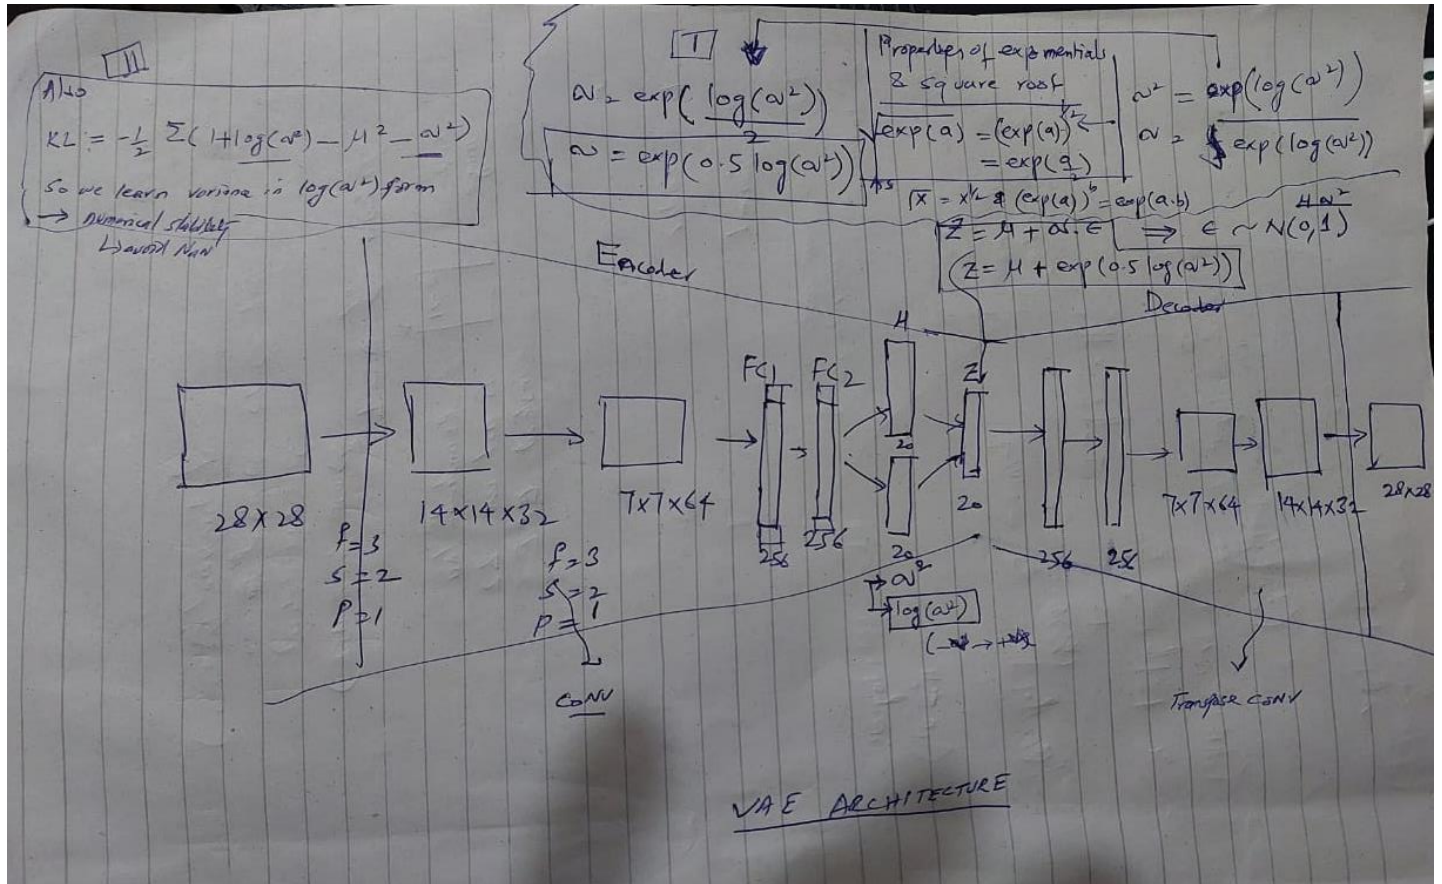 II
Also
KL = -1/2 Σ(1+log(σ²) - μ² - σ²)
So we learn in log(σ²) form
→ numerical stability
↳ avoid NaN
I
σ = exp(log(σ²)/2)
σ = exp(0.5 log(σ²))
Properties of exponentials
& square root
√exp(a) = (exp(a))^1/2
= exp(a/2)
√x = x^1/2 & (exp(a))^b = exp(a·b)
σ² = exp(log(σ²))
σ = √exp(log(σ²))
Z = μ + σ·ϵ ⟹ ϵ ~ N(0,1)
Z = μ + exp(0.5 log(σ²))
Encoder
Decoder
μ
FC1
FC2
Z
28×28
14×14×32
7×7×64
256
256
20
20
20
256
256
7×7×64
14×14×32
28×28
f=3
S=2
P=1
f=3
S=2
P=1
→ σ²
→ log(σ²)
CONV
Transpose CONV
VAE ARCHITECTURE